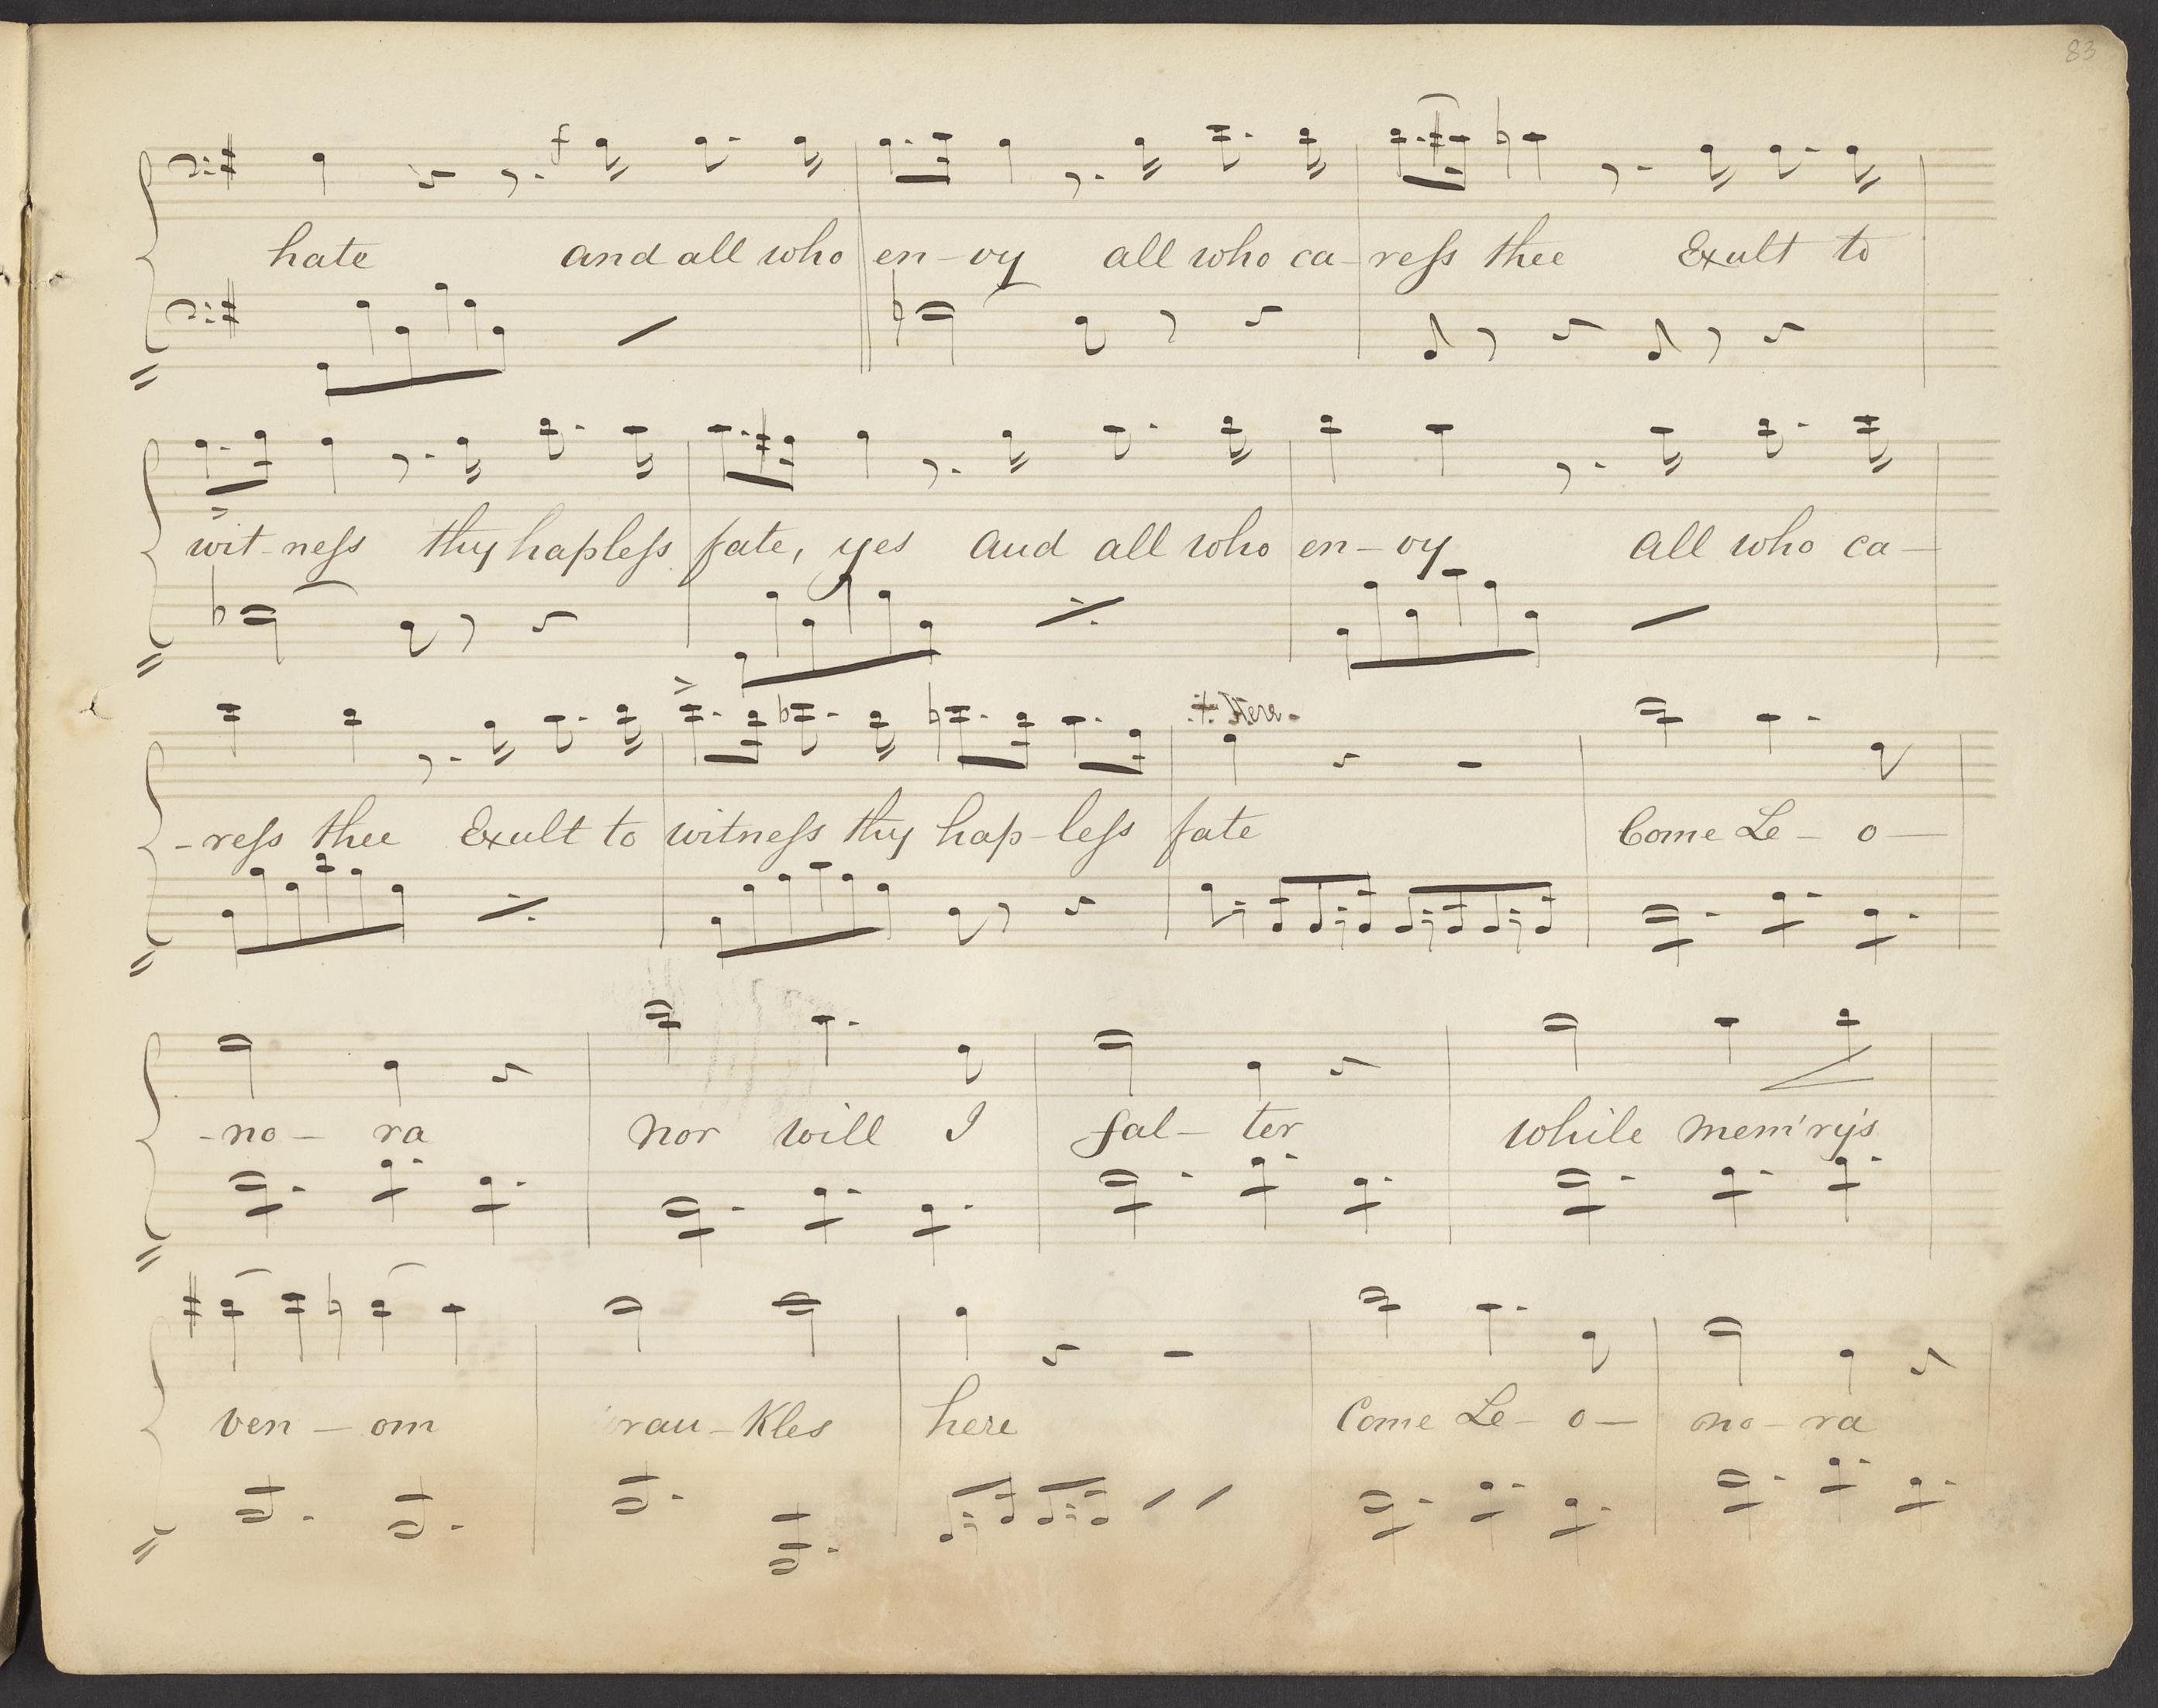 83
f
hate and all who en-vy all who ca-reſs thee Exult to
wit-neſs thy hapleſs fate, yes and all who en-vy all who ca-
Here-
-reſs thee Exult to witneſs thy hap-leſs fate Come Le-o-
-no-ra nor will I fal-ter while mem'ry's
ven-om rau-Kles here Come Le-o-no-ra